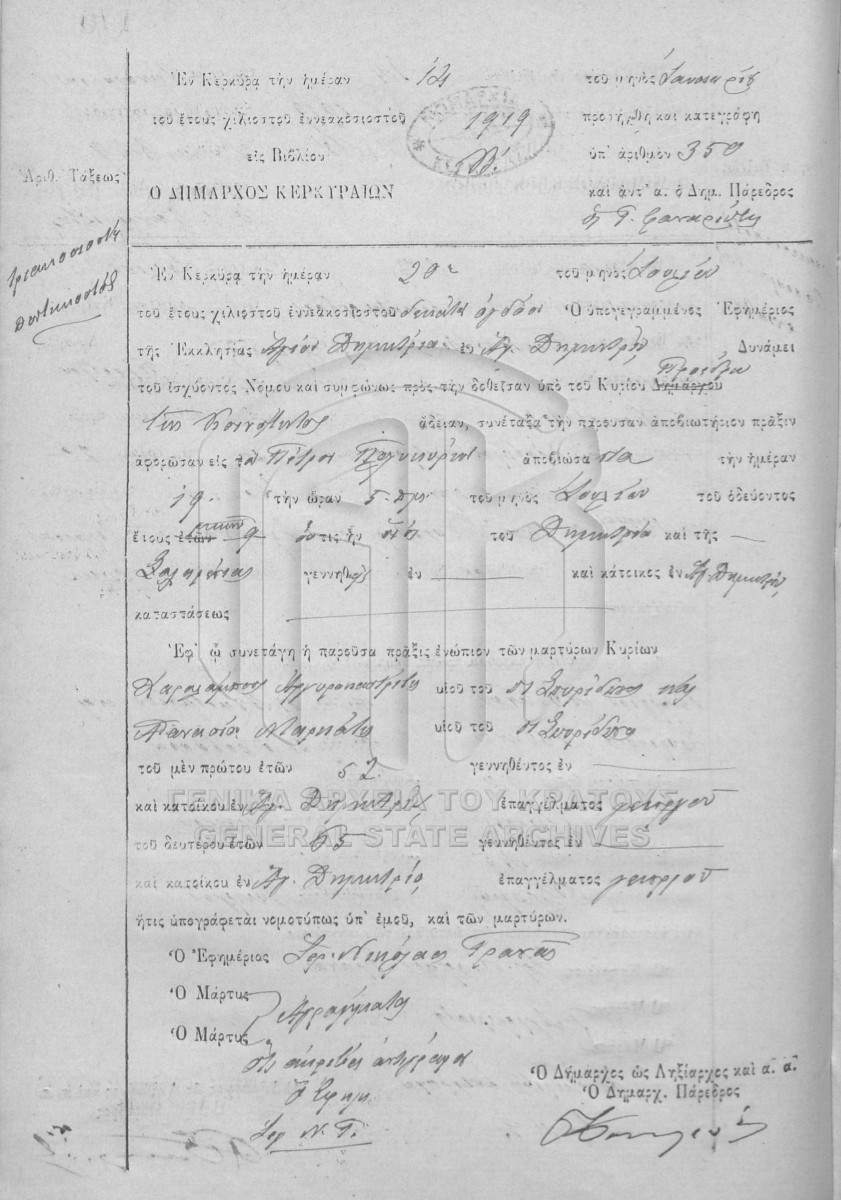 Ἐν Κερκύρᾳ τὴν ἡμέραν 14 τοῦ μηνὸς Ἰανουαρίου
τοῦ ἔτους χιλιοστοῦ ἐννεακοσιοστοῦ 1919 προσήχθη καὶ κατεγράφη
εἰς Βιβλίον Β' ὑπ' ἀριθμὸν 350
Ἀριθ. Τάξεως
Ο ΔΗΜΑΡΧΟΣ ΚΕΡΚΥΡΑΙΩΝ καὶ ἀντ' α. ὁ Δημ. Πάρεδρος
τριακοσιοστὴ
πεντηκοστὴ
Ἐν Κερκύρᾳ τὴν ἡμέραν 20 τοῦ μηνὸς Ἰουλίου
τοῦ ἔτους χιλιοστοῦ ἐννεακοσιοστοῦ δεκάτου ὀγδόου Ὁ ὑπογεγραμμένος Ἐφημέριος
τῆς Ἐκκλησίας Ἁγίου Δημητρίου ἐν Ἁγ. Δημητρίῳ Δυνάμει
Προέδρου
τοῦ ἰσχύοντος Νόμου καὶ συμφώνως πρὸς τὴν δοθεῖσαν ὑπὸ τοῦ Κυρίου Δημάρχου
τῆς Κοινότητος ἄδειαν, συνέταξα τὴν παροῦσαν ἀποβιωτήριον πρᾶξιν
ἀφορῶσαν εἰς τὸν Πέτρον ἀποβιώσαντα τὴν ἡμέραν
19 τὴν ὥραν 5 μ.μ. τοῦ μηνὸς Ἰουλίου τοῦ ὁδεύοντος
ἔτους ἐτῶν 9 ὅστις ἦν υἱὸς τοῦ Δημητρίου καὶ τῆς
γεννηθεὶς ἐν καὶ κάτοικος ἐν Ἁγ. Δημητρίῳ
καταστάσεως
Ἐφ' ᾧ συνετάγη ἡ παροῦσα πρᾶξις ἐνώπιον τῶν μαρτύρων Κυρίων
Χαραλάμπους Ἀργυροκαστρίτη υἱοῦ τοῦ Σπυρίδωνος καὶ
υἱοῦ τοῦ Σπυρίδωνος
τοῦ μὲν πρώτου ἐτῶν 52 γεννηθέντος ἐν
καὶ κατοίκου ἐν Ἁγ. Δημητρίῳ ἐπαγγέλματος γεωργοῦ
ΓΕΝΙΚΑ ΑΡΧΕΙΑ ΤΟΥ ΚΡΑΤΟΥΣ
GENERAL STATE ARCHIVES
τοῦ δευτέρου ἐτῶν 65 γεννηθέντος ἐν
καὶ κατοίκου ἐν Ἁγ. Δημητρίῳ ἐπαγγέλματος γεωργοῦ
ἥτις ὑπογράφεται νομοτύπως ὑπ' ἐμοῦ, καὶ τῶν μαρτύρων.
Ὁ Ἐφημέριος Ἱερ. Νικόλαος
Ὁ Μάρτυς
Ἀγράμματοι
Ὁ Μάρτυς
Ὅτι ἀκριβὲς ἀντίγραφον
Ὁ Ἐφημ.
Ἱερ. Ν. Γ.
Ὁ Δήμαρχος ὡς Ληξίαρχος καὶ α. α.
Ὁ Δημαρχ. Πάρεδρος